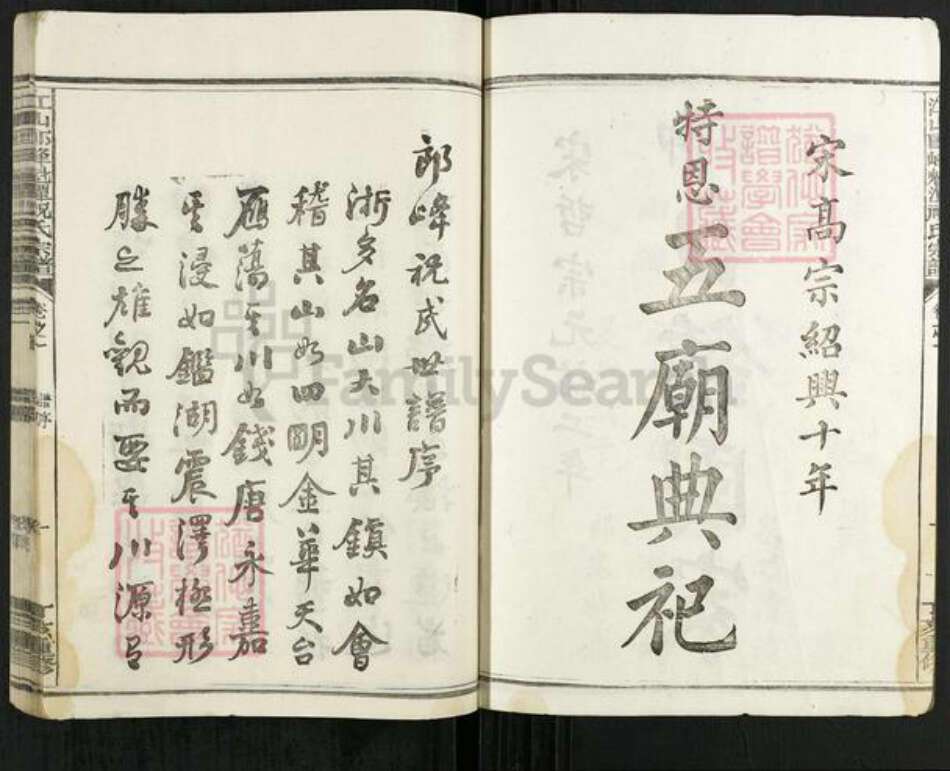 宋高宗紹興十年
特恩五廟典祀
郎峰祝氏世譜序
浙多名山大川其鎮如會
稽其山如四明金華天台
雁蕩其川如錢唐永嘉
其浸如鑑湖震澤極形
勝之雄觀而要其川源
FamilySearch